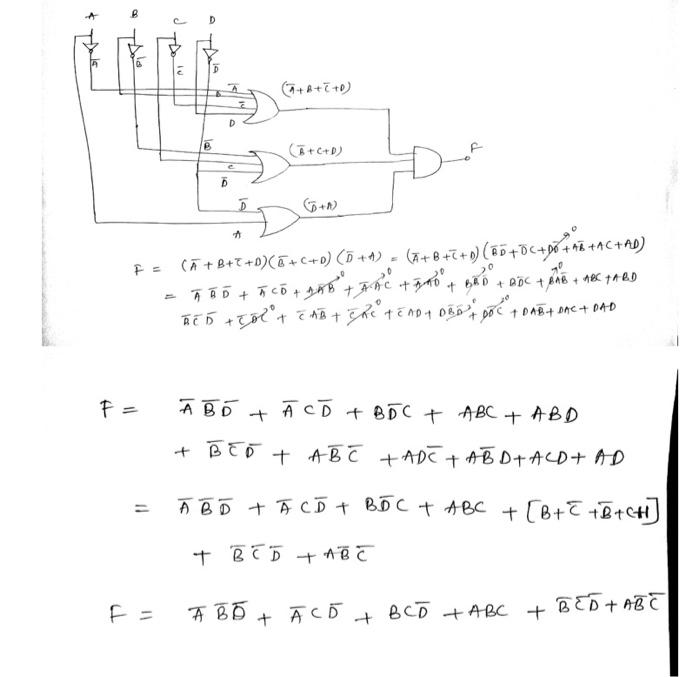 A B C D
A̅ B̅ C̅ D̅
A̅ (A̅+B+C̅+D)
B
C̅
D
B̅ (B̅+C+D̅) F
C
D̅
D̅ (D̅+A)
A
F = (A̅+B+C̅+D)(B̅+C+D̅)(D̅+A) = (A̅+B+C̅+D)(B̅D̅+D̅C+DD̅⁰+AB̅+AC+AD)
= A̅B̅D̅ + A̅CD̅ + A̅AB̅⁰ + A̅AC⁰ + A̅AD⁰ + BB̅D̅⁰ + BD̅C + BAB̅⁰ + ABC + ABD
B̅C̅D̅ + C̅D̅C⁰ + C̅AB̅ + C̅AC⁰ + C̅AD + DB̅D̅⁰ + DD̅C⁰ + DAB̅ + DAC + DAD
F = A̅B̅D̅ + A̅CD̅ + BD̅C + ABC + ABD
+ B̅C̅D̅ + AB̅C̅ + ADC̅ + AB̅D + ACD + AD
= A̅B̅D̅ + A̅CD̅ + BD̅C + ABC + [B+C̅+B̅+C+1]
+ B̅C̅D̅ + AB̅C̅
F = A̅B̅D̅ + A̅CD̅ + BCD̅ + ABC + B̅C̅D̅ + AB̅C̅